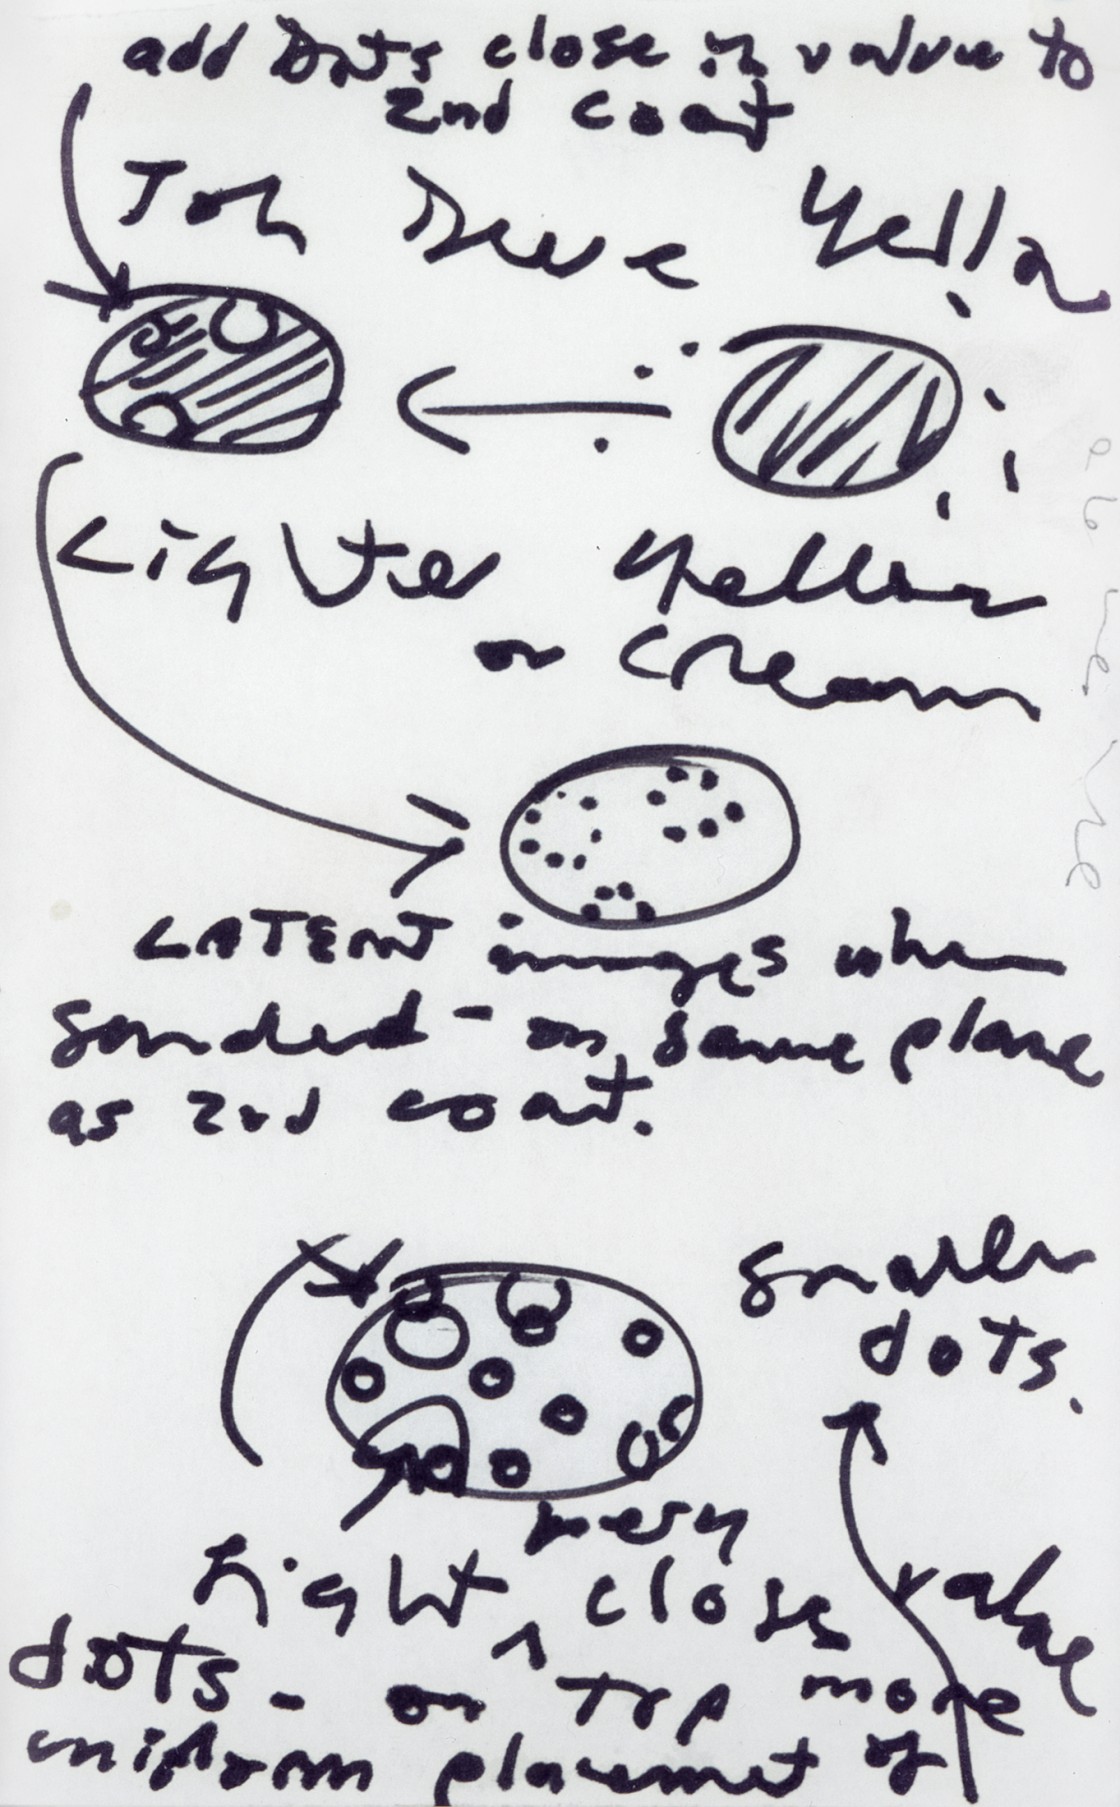 add Dots close in value to
2nd coat
Then Yella
Lighter yellow
or cream
LATENT images when
sanded - on same plane
as 2nd coat.
smaller
dots.
very
light ^ close value
dots - on top more
uniform placement of